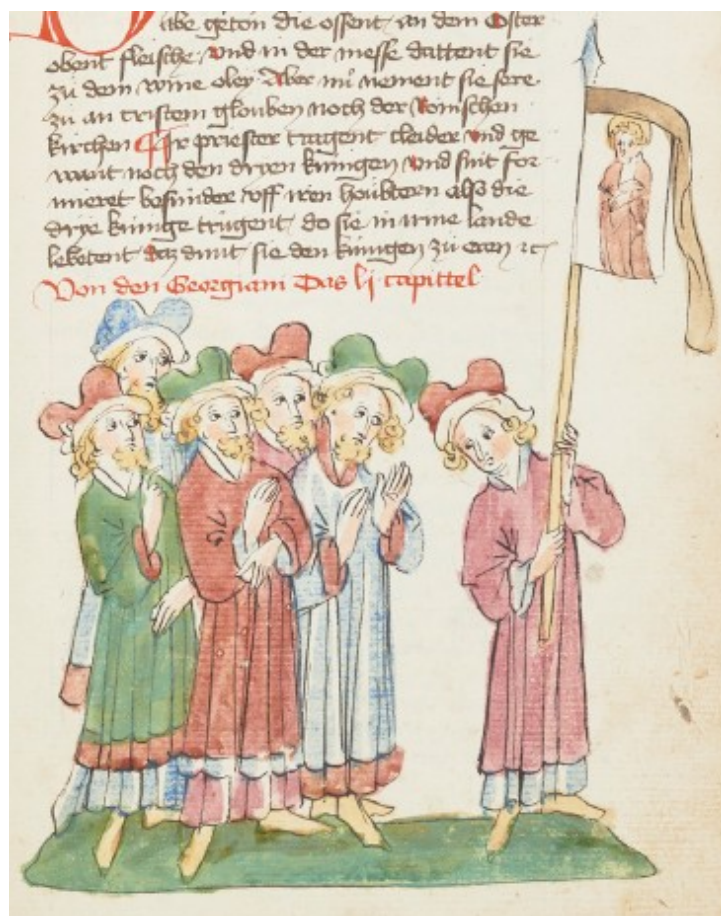 abe geton die offent an dem Oster
obent fleische vnd in der messe dattent sie
zu dem wine oley Aber nu nement sie sere
zu an cristem glouben noch der Romischen
kirchen Ir priester tragent cleider vnd ge
want noch den dryen kunigen vnd sint for
mieret besunder vff iren houbtern also die
drye kunige trugent do sie in irme lande
lebetent daz dunt sie den kunigen zu eren ꝛc
Von den Georgiani Das lj capittel